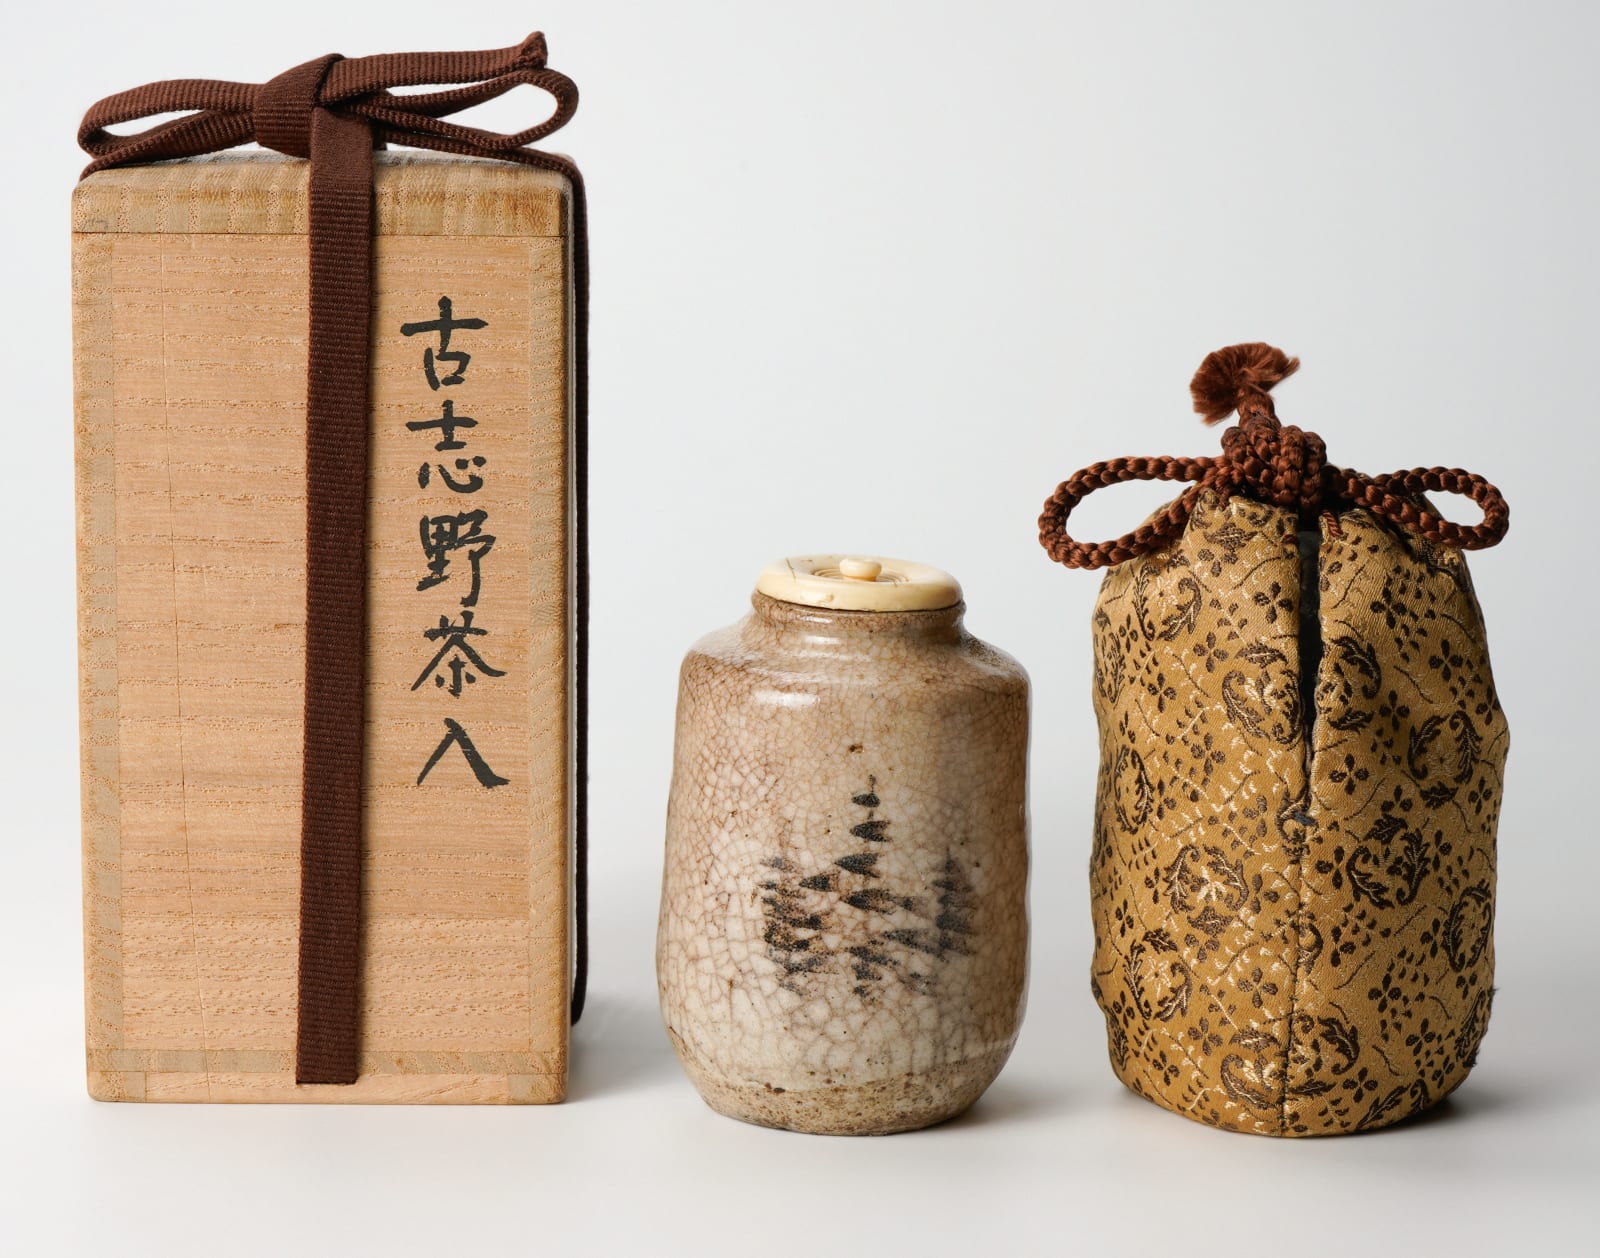 古志野茶入